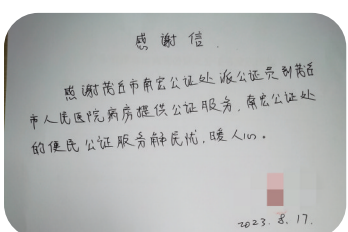 感谢信
感谢商丘市南宏公证处派公证员到商丘
市人民医院病房提供公证服务，南宏公证处
的便民公证服务解民忧，暖人心。
2023.8.17.